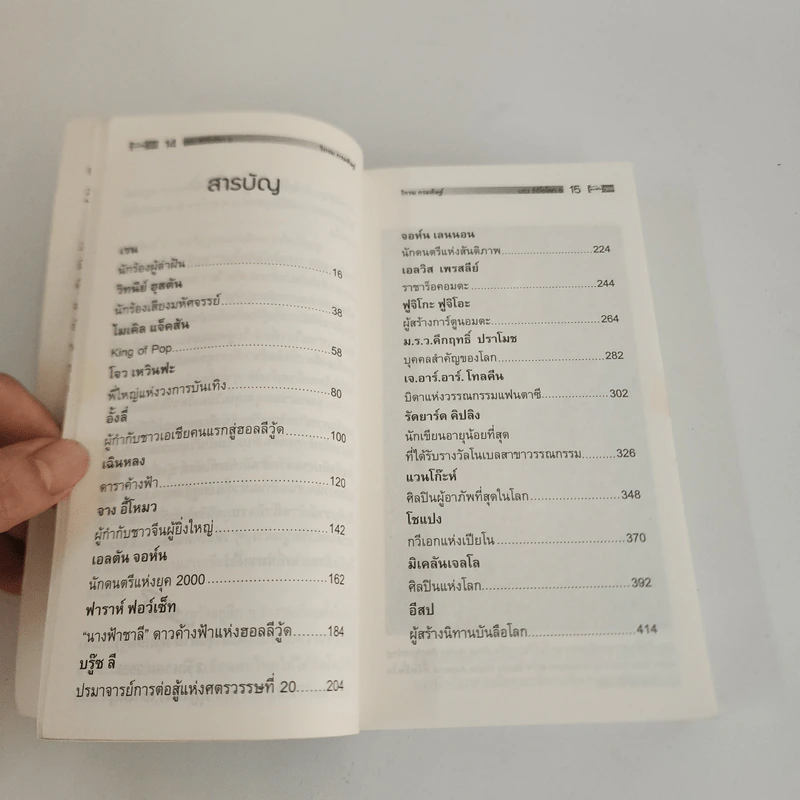 14
วิกรม กรมดิษฐ์
สารบัญ
เซน
นักร้องผู้ล่าฝัน 16
วิทนีย์ ฮุสตัน
นักร้องเสียงมหัศจรรย์ 38
ไมเคิล แจ็คสัน
King of Pop 58
โจว เหวินฟะ
พี่ใหญ่แห่งวงการบันเทิง 80
อั้งลี่
ผู้กำกับชาวเอเชียคนแรกสู่ฮอลลีวู้ด 100
เฉินหลง
ดาราค้างฟ้า 120
จาง อี้โหมว
ผู้กำกับชาวจีนผู้ยิ่งใหญ่ 142
เอลตัน จอห์น
นักดนตรีแห่งยุค 2000 162
ฟาราห์ ฟอว์เซ็ท
"นางฟ้าชาลี" ดาวค้างฟ้าแห่งฮอลลีวู้ด 184
บรู๊ซ ลี
ปรมาจารย์การต่อสู้แห่งศตรวรรษที่ 20 204
วิกรม กรมดิษฐ์
15
จอห์น เลนนอน
นักดนตรีแห่งสันติภาพ 224
เอลวิส เพรสลีย์
ราชาร็อคอมตะ 244
ฟูจิโกะ ฟูจิโอะ
ผู้สร้างการ์ตูนอมตะ 264
ม.ร.ว.คึกฤทธิ์ ปราโมช
บุคคลสำคัญของโลก 282
เจ.อาร์.อาร์. โทลคีน
บิดาแห่งวรรณกรรมแฟนตาซี 302
รัดยาร์ด คิปลิง
นักเขียนอายุน้อยที่สุด
ที่ได้รับรางวัลโนเบลสาขาวรรณกรรม 326
แวนโก๊ะห์
ศิลปินผู้อาภัพที่สุดในโลก 348
โชแปง
กวีเอกแห่งเปียโน 370
มิเคลันเจลโล
ศิลปินแห่งโลก 392
อีสป
ผู้สร้างนิทานบันลือโลก 414